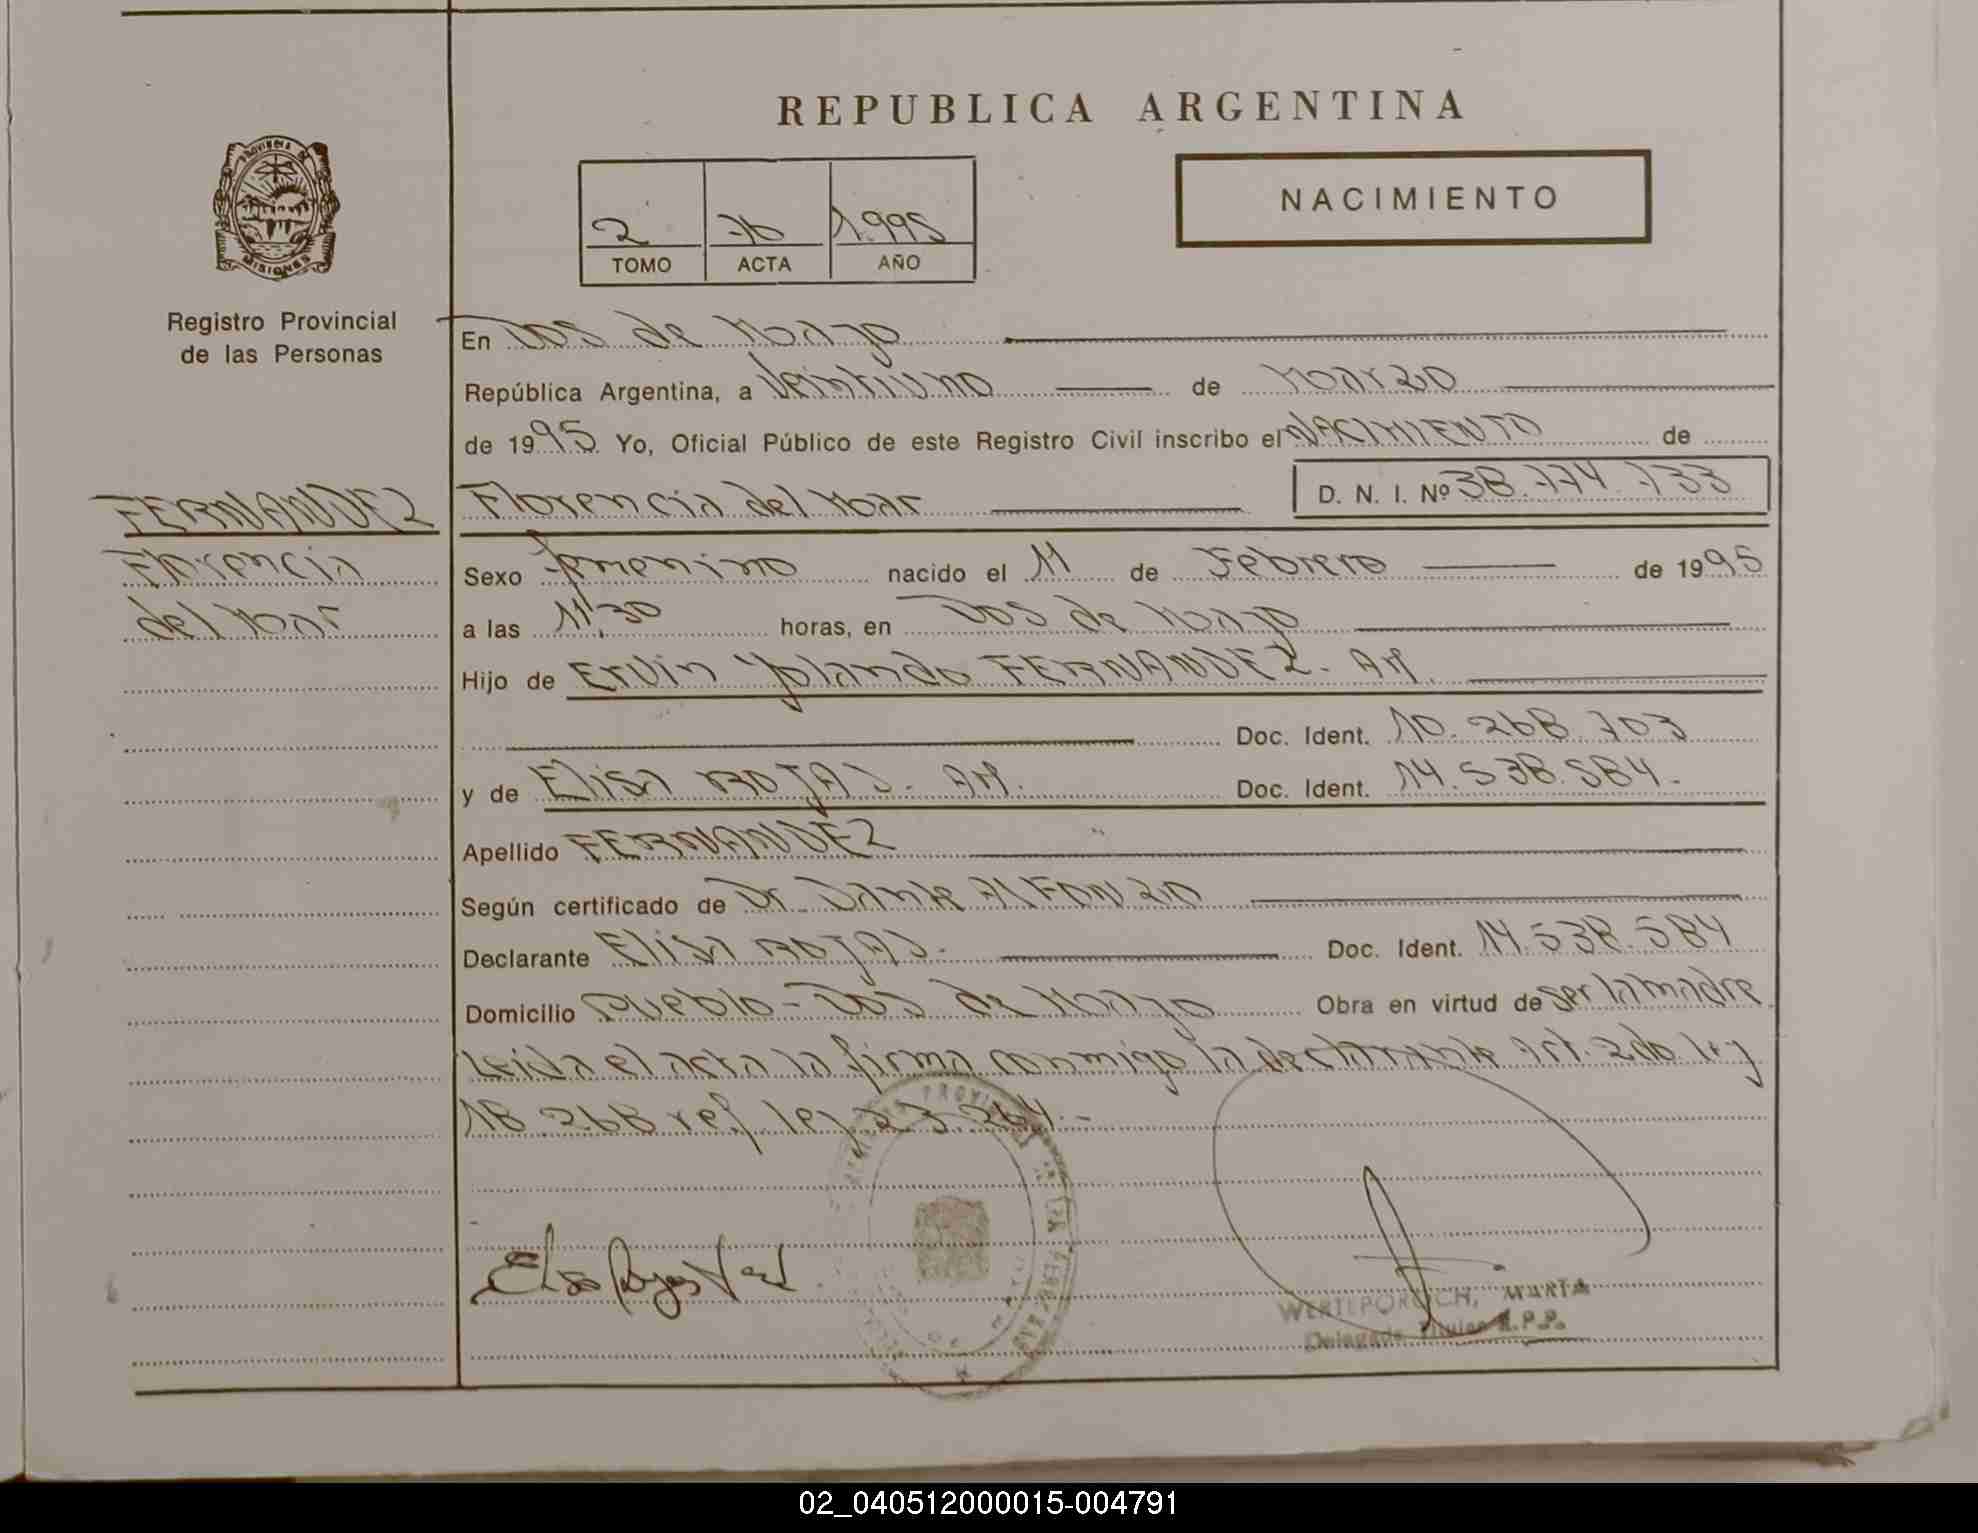 REPUBLICA ARGENTINA
PROVINCIA DE
MISIONES
Registro Provincial
de las Personas
NACIMIENTO
2 76 1.995
TOMO ACTA AÑO
En Dos de Mayo
República Argentina, a Veintiuno de Marzo
de 1995 Yo, Oficial Público de este Registro Civil inscribo el NACIMIENTO de
FERNANDEZ
Florencia del Mar D. N. I. Nº 38.774.733
Florencia
Sexo femenino nacido el 11 de Febrero de 1995
del Mar
a las 11,30 horas, en Dos de Mayo
Hijo de Ervin Yolando FERNANDEZ. AR.
Doc. Ident. 10.268.703
y de Elisa ROJAS. AR. Doc. Ident. 14.538.584.
Apellido FERNANDEZ
Según certificado de Dr. Dante ALFONZO
Declarante Elisa ROJAS. Doc. Ident. 14.538.584
Domicilio Pueblo - Dos de Mayo Obra en virtud de ser la madre
Leída el acta la firma conmigo la declarante art. 2do ley
18.268 ref. ley 23.264.-
Elisa Rojas
WERTEPOROCH, MARTA
Delegada Titular R.P.P.
02_040512000015-004791